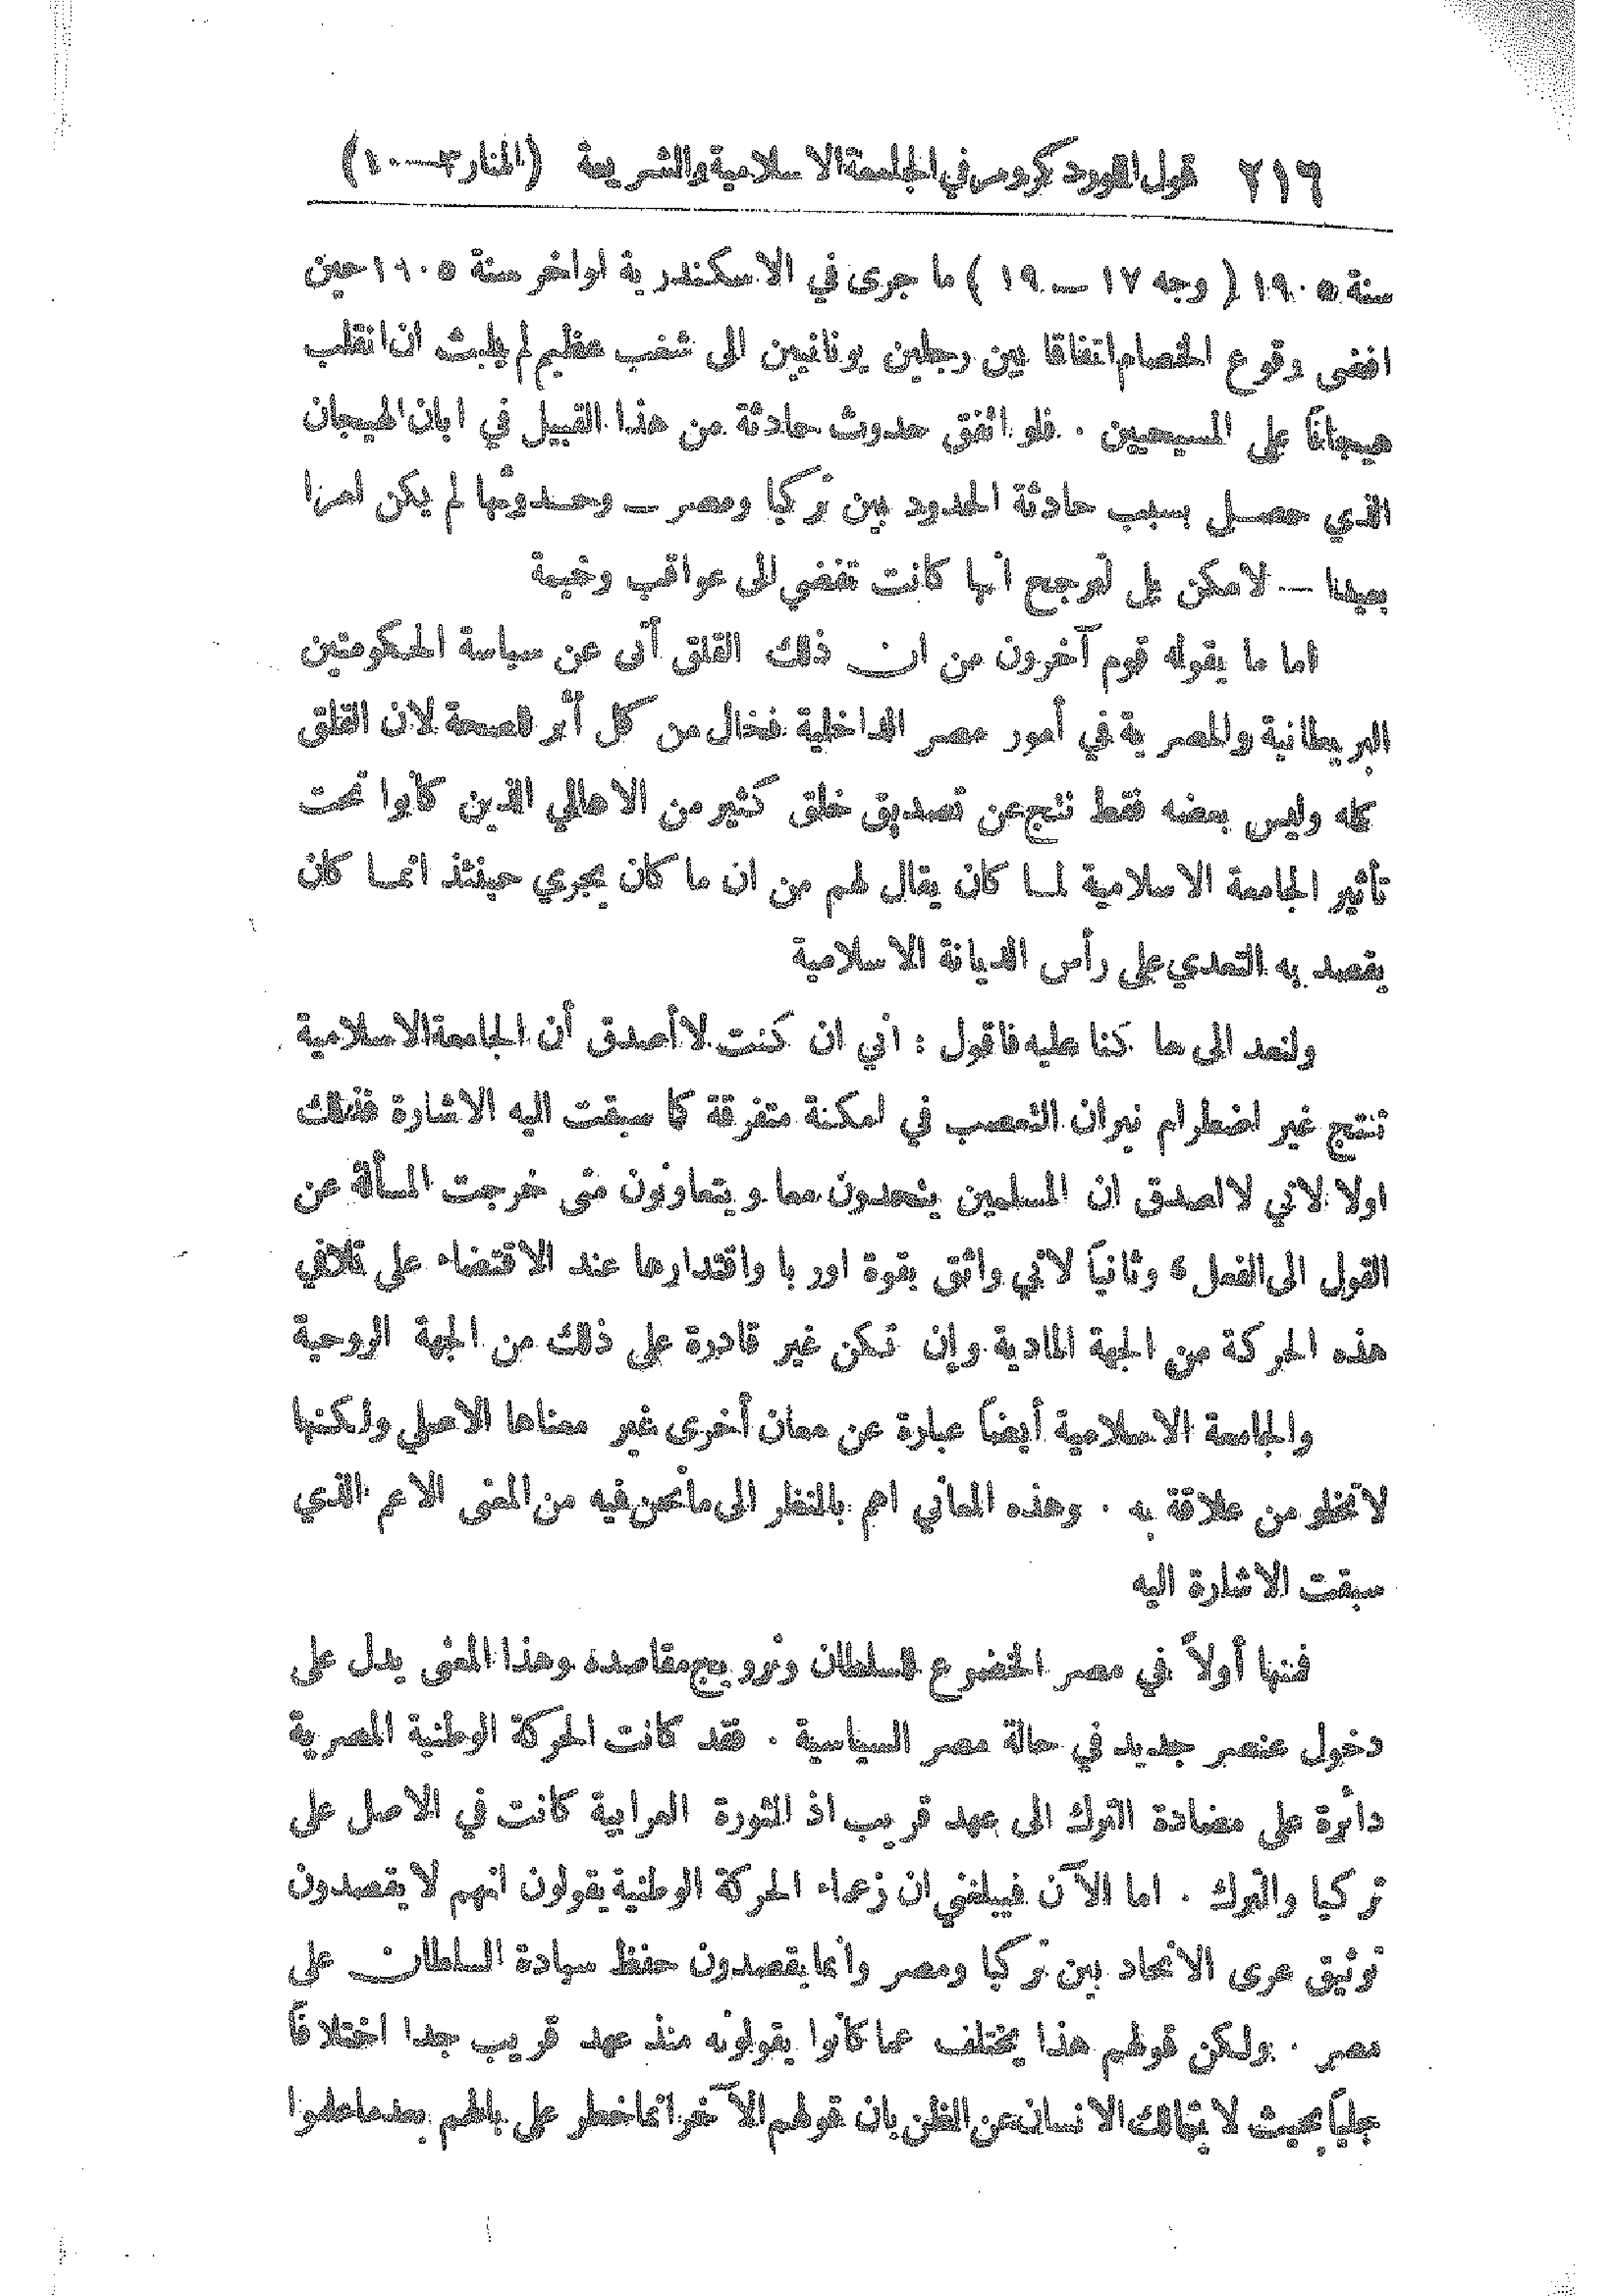 ٢١٦ قول اللورد كرومر في الجامعة الاسلامية والشريعة (المنار ٣—١٠)
سنة ١٩٠٥ ( وجه ١٧ — ١٩ ) ما جرى في الاسكندرية اواخر سنة ١٩٠٥ حين
افضى وقوع الخصام اتفاقا بين رجلين يونانيين الى شغب عظيم لم يلبث ان انقلب
هيجاناً على المسيحيين . فلو اتفق حدوث حادثة من هذا القبيل في ابان الهيجان
الذي حصل بسبب حادثة الحدود بين تركيا ومصر — وحدوثها لم يكن امرا
بعيدا — لامكن بل لترجح انها كانت تفضي الى عواقب وخيمة
اما ما يقوله قوم آخرون من ان ذلك القلق أتى عن سياسة الحكومتين
البريطانية والمصرية في أمور مصر الداخلية فخال من كل أثر للصحة لان القلق
كله وليس بعضه فقط نتج عن تصديق خلق كثير من الاهالي الذين كانوا تحت
تأثير الجامعة الاسلامية لما كان يقال لهم من ان ما كان يجري حينئذ انما كان
يقصد به التعدي على رأس الديانة الاسلامية
ولنعد الى ما كنا عليه فاقول : اني ان كنت لا أصدق أن الجامعة الاسلامية
تنتج غير اضطرام نيران التعصب في امكنة متفرقة كما سبقت اليه الاشارة فذلك
اولا لاني لا اصدق ان المسلمين يتحدون معا ويتعاونون متى خرجت المسألة عن
القول الى الفعل ، وثانياً لاني واثق بقوة اوربا واقتدارها عند الاقتضاء على تلافي
هذه الحركة من الجهة المادية وإن تكن غير قادرة على ذلك من الجهة الروحية
والجامعة الاسلامية أيضاً عبارة عن معان أخرى غير معناها الاصلي ولكنها
لا تخلو من علاقة به . وهذه المعاني اهم بالنظر الى ما نحن فيه من المعنى الاعم الذي
سبقت الاشارة اليه
فمنها أولاً في مصر الخضوع للسلطان وترويج مقاصده وهذا المعنى يدل على
دخول عنصر جديد في حالة مصر السياسية . فقد كانت الحركة الوطنية المصرية
دائرة على مضادة الترك الى عهد قريب اذ الثورة العرابية كانت في الاصل على
تركيا والترك . اما الآن فيبلغني ان زعماء الحركة الوطنية يقولون انهم لا يقصدون
توثيق عرى الاتحاد بين تركيا ومصر وانما يقصدون حفظ سيادة السلطان على
مصر . ولكن قولهم هذا يختلف عما كانوا يقولونه منذ عهد قريب جدا اختلافاً
جلياً بحيث لا يتمالك الانسان عن الظن بان قولهم الآخر انما خطر على بالهم بعدما علموا